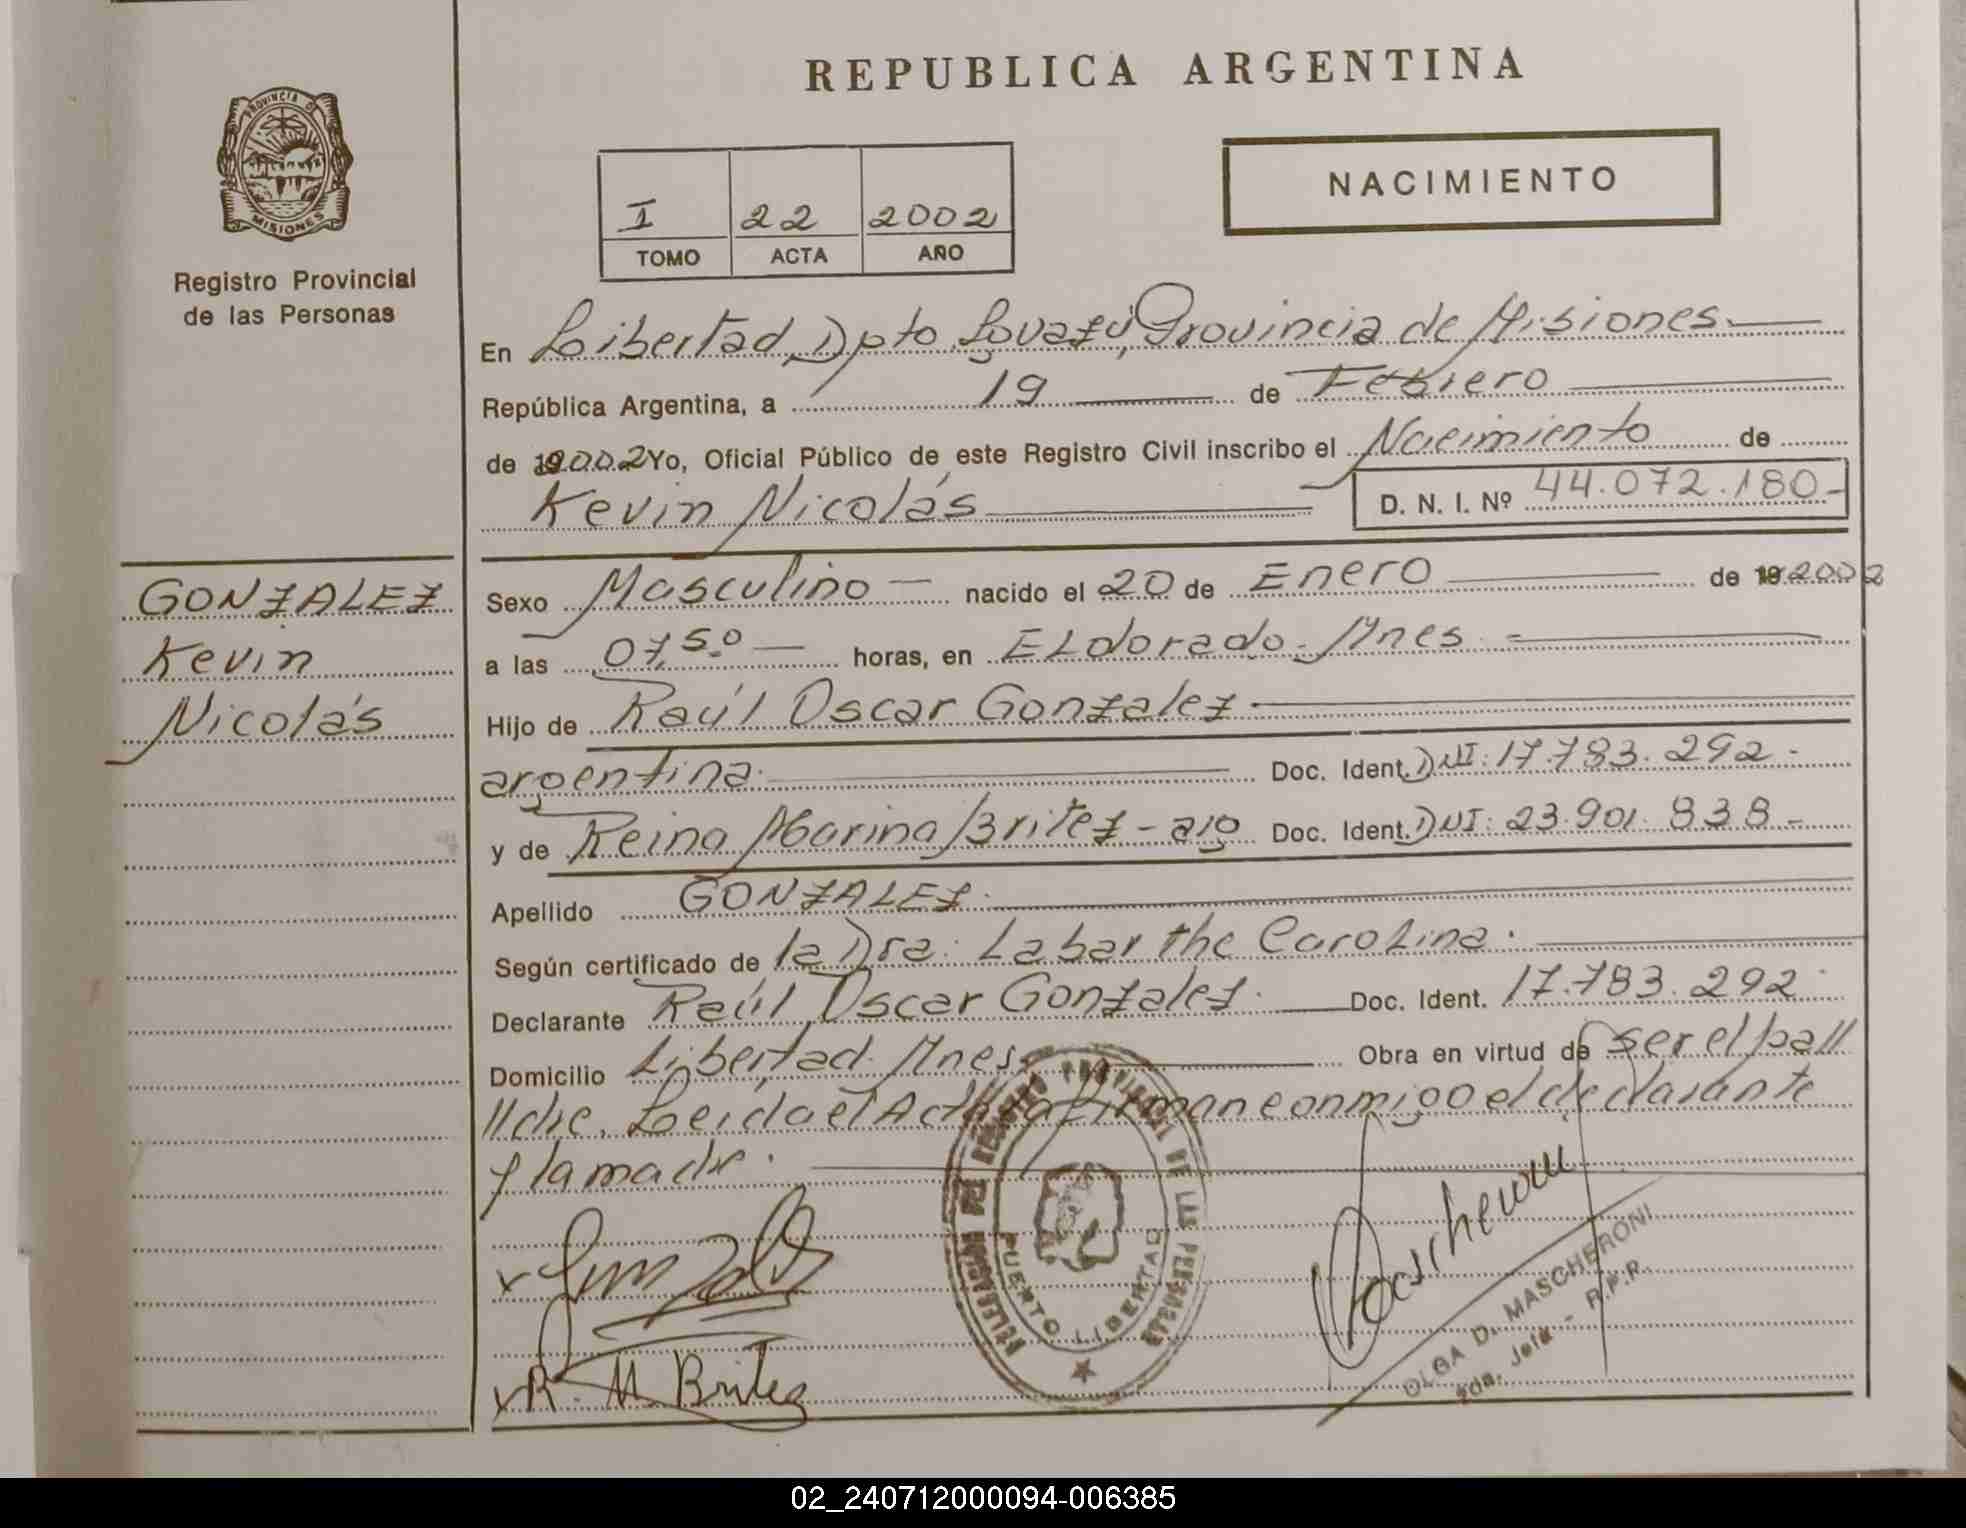 REPUBLICA ARGENTINA
PROVINCIA D
MISIONES
Registro Provincial
de las Personas
I 22 2002
TOMO ACTA AÑO
NACIMIENTO
En Libertad, Dpto. Iguazú, Provincia de Misiones.
República Argentina, a 19 de Febrero
de 2002 Yo, Oficial Público de este Registro Civil inscribo el Nacimiento de
Kevin Nicolás D. N. I. Nº 44.072.180-
GONZALEZ
Kevin
Nicolás
Sexo Masculino nacido el 20 de Enero de 19 2002
a las 07,50 horas, en ELdorado. Mnes.
Hijo de Raúl Oscar Gonzalez.
argentina. Doc. Ident. DNI: 17.783.292-
y de Reina Marina Britez - arg Doc. Ident. DNI: 23.901.838-
Apellido GONZALEZ.
Según certificado de la Dra. Labarthe Carolina.
Declarante Raúl Oscar Gonzalez. Doc. Ident. 17.783.292
Domicilio Libertad. Mnes. Obra en virtud de ser el pa//
//dre. Leida el Acta la firman conmigo el declarante
y la madre.
Gonzalez
R. M. Britez
DELEGACION DEL REGISTRO PROVINCIAL DE LAS PERSONAS
PUERTO LIBERTAD
Mascheroni
OLGA D. MASCHERONI
2da. Jefa - R.P.P.
02_240712000094-006385